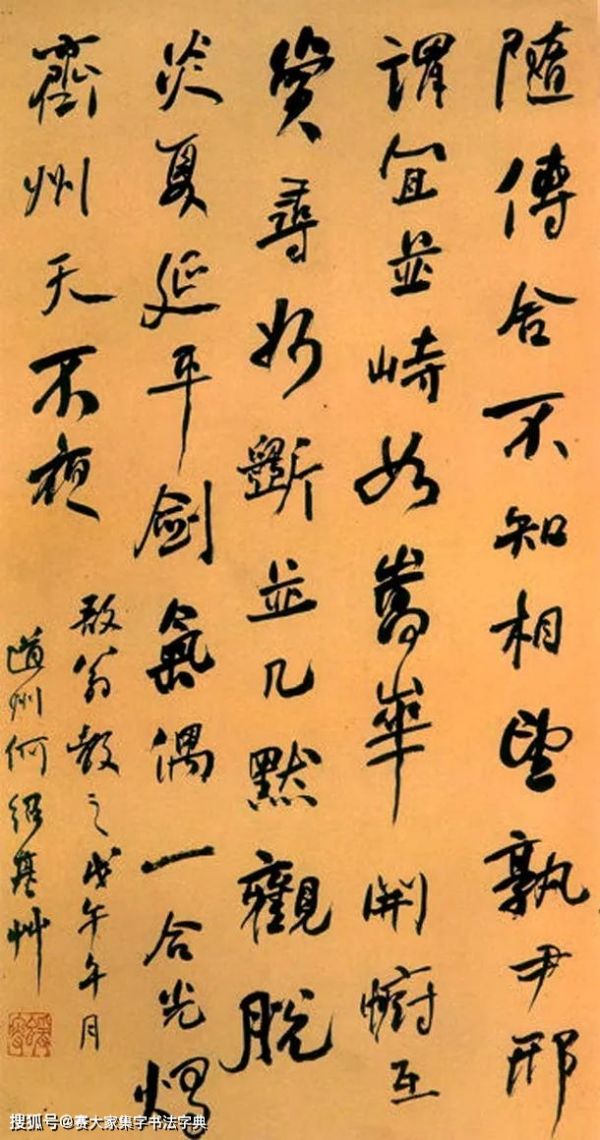 隨傳舍不知相望孰尹邢
謂宜並峙如嵩華開幮互
尋妙斲並几默觀脫
炎夏延平劍氣偶一合光燭
齊州天不夜
翁教之戊午午月
道州何紹基艸
搜狐号@赛大家集字书法字典